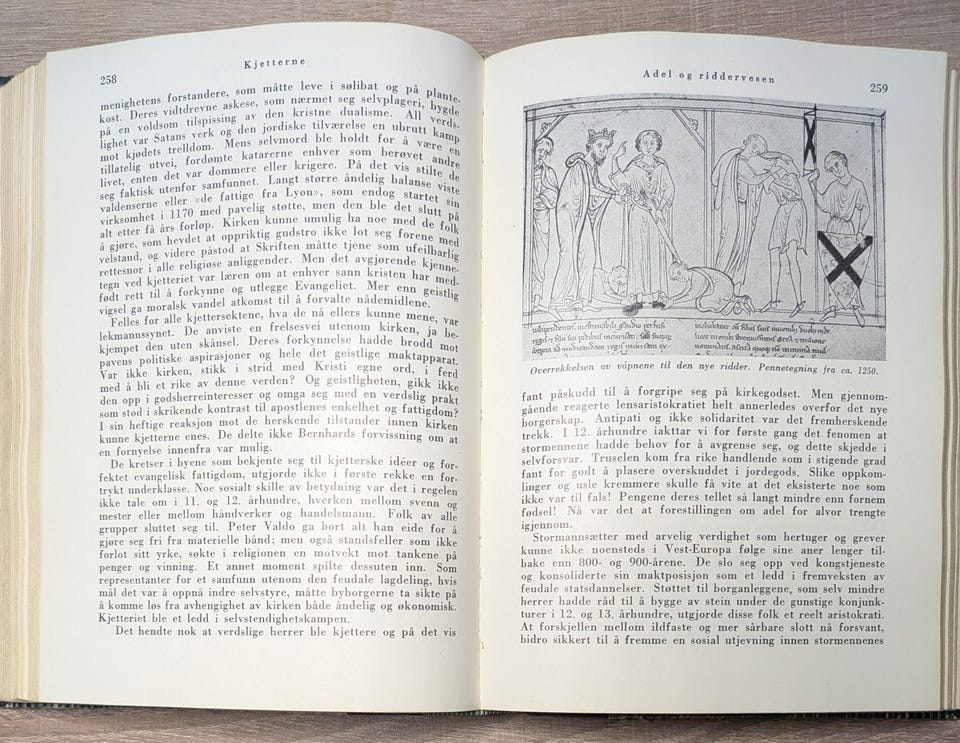 258
Kjetterne
menighetens forstandere, som måtte leve i sølibat og på plante-
kost. Deres vidtdrevne askese, som nærmet seg selvplageri, bygde
på en voldsom tilspissing av den kristne dualisme. All verds-
lighet var Satans verk og den jordiske tilværelse en ubrutt kamp
mot kjødets trelldom. Mens selvmord ble holdt for å være en
tillatelig utvei, fordømte katarerne enhver som berøvet andre
livet, enten det var dommere eller krigere. På det vis stilte de
seg faktisk utenfor samfunnet. Langt større åndelig balanse viste
valdenserne eller «de fattige fra Lyon», som endog startet sin
virksomhet i 1170 med pavelig støtte, men den ble det slutt på
alt etter få års forløp. Kirken kunne umulig ha noe med de folk
å gjøre, som hevdet at oppriktig gudstro ikke lot seg forene med
velstand, og videre påstod at Skriften måtte tjene som ufeilbarlig
rettesnor i alle religiøse anliggender. Men det avgjørende kjenne-
tegn ved kjetteriet var læren om at enhver sann kristen har med-
født rett til å forkynne og utlegge Evangeliet. Mer enn geistlig
vigsel ga moralsk vandel atkomst til å forvalte nådemidlene.
Felles for alle kjettersektene, hva de nå ellers kunne mene, var
lekmannssynet. De anviste en frelsesvei utenom kirken, ja be-
kjempet den uten skånsel. Deres forkynnelse hadde brodd mot
pavens politiske aspirasjoner og hele det geistlige maktapparat.
Var ikke kirken, stikk i strid med Kristi egne ord, i ferd
med å bli et rike av denne verden? Og geistligheten, gikk ikke
den opp i godsherreinteresser og omga seg med en verdslig prakt
som stod i skrikende kontrast til apostlenes enkelhet og fattigdom?
I sin heftige reaksjon mot de herskende tilstander innen kirken
kunne kjetterne enes. De delte ikke Bernhards forvissning om at
en fornyelse innenfra var mulig.
De kretser i byene som bekjente seg til kjetterske idéer og for-
fektet evangelisk fattigdom, utgjorde ikke i første rekke en for-
trykt underklasse. Noe sosialt skille av betydning var det i regelen
ikke tale om i 11. og 12. århundre, hverken mellom svenn og
mester eller mellom håndverker og handelsmann. Folk av alle
grupper sluttet seg til. Peter Valdo ga bort alt han eide for å
gjøre seg fri fra materielle bånd; men også standsfeller som ikke
forlot sitt yrke, søkte i religionen en motvekt mot tanken på
penger og vinning. Et annet moment spilte dessuten inn. Som
representanter for et samfunn utenom den feudale lagdeling, hvis
mål det var å oppnå indre selvstyre, måtte byborgerne ta sikte på
å komme løs fra avhengighet av kirken både åndelig og økonomisk.
Kjetteriet ble et ledd i selvstendighetskampen.
Det hendte nok at verdslige herrer ble kjettere og på det vis
Adel og riddervesen
259
Overrekkelsen av våpnene til den nye ridder. Pennetegning fra ca. 1250.
fant påskudd til å forgripe seg på kirkegodset. Men gjennom-
gående reagerte lensaristokratiet helt annerledes overfor det nye
borgerskap. Antipati og ikke solidaritet var det fremherskende
trekk. I 12. århundre iakttar vi for første gang det fenomen at
stormennene hadde behov for å avgrense seg, og dette skjedde i
selvforsvar. Truselen kom fra rike handlende som i stigende grad
fant for godt å plasere overskuddet i jordegods. Slike oppkom-
linger og usle kremmere skulle få vite at det eksisterte noe som
ikke var til fals! Pengene deres tellet så langt mindre enn fornem
fødsel! Nå var det at forestillingen om adel for alvor trengte
igjennom.
Stormannsætter med arvelig verdighet som hertuger og grever
kunne ikke noensteds i Vest-Europa følge sine aner lenger til-
bake enn 800- og 900-årene. De slo seg opp ved kongstjeneste
og konsoliderte sin maktposisjon som et ledd i fremveksten av
feudale statsdannelser. Støttet til borganleggene, som selv mindre
herrer hadde råd til å bygge av stein under de gunstige konjunk-
turer i 12. og 13. århundre, utgjorde disse folk et reelt aristokrati.
At forskjellen mellom ildfaste og mer sårbare slott nå forsvant,
bidro sikkert til å fremme en sosial utjevning innen stormennenes